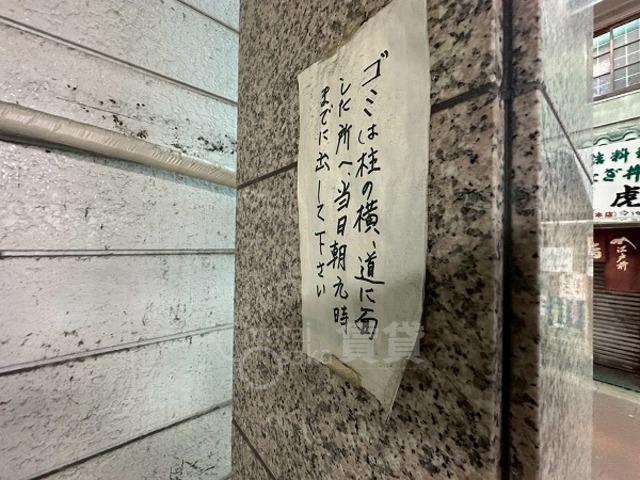 ゴミは柱の横、道に面
した所へ、当日朝九時
までに出して下さい
賃貸
料理
虎
本店
江戸前